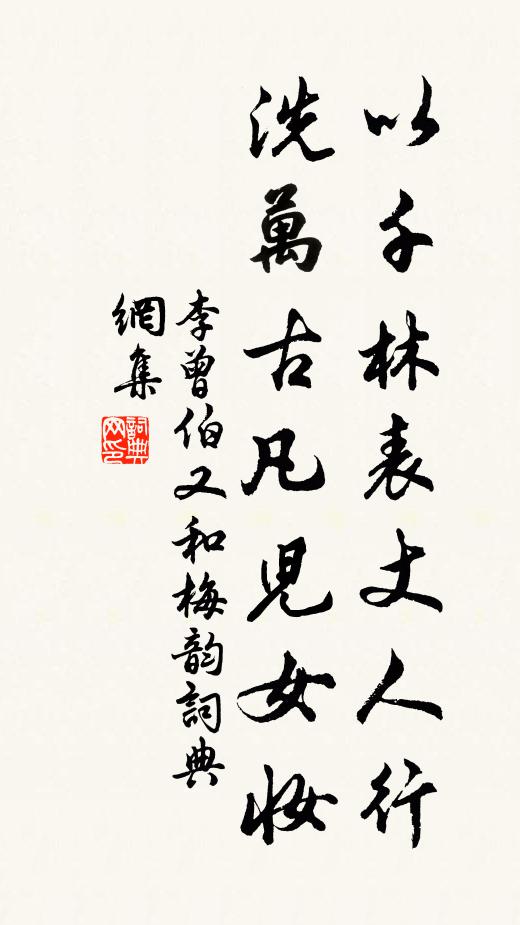 以千林表丈人行
洗萬古凡兒女妝
李曾伯又和梅韵詞典
網集
詞典
网印